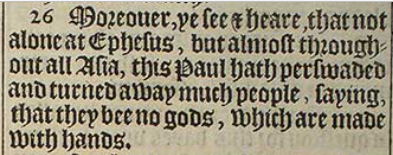 26 Moreouer, ye see & heare, that not
alone at Ephesus, but almost through-
out all Asia, this Paul hath perswaded
and turned away much people, saying,
that they bee no gods, which are made
with hands.